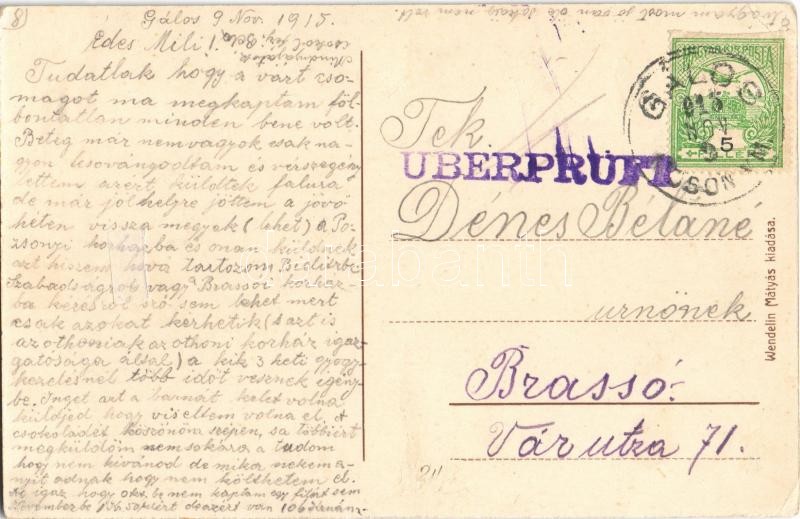 8)
Gálos 9 Nov. 1915.
Édes Mili!
csókol férj: Béla
Tudatlak hogy a várt cso-
magot ma megkaptam föl-
bontatlan minden bene volt.
Beteg már nem vagyok csak na-
gyon lesoványodtam és vérszegény
lettem azért küldtek falura
de már jól helyre jöttem a jövő
héten vissza megyek (lehet) a Po-
zsonyi korházba és onan küldenek
azt hiszem hová tartozom
Szabadságról vagy Brassói korház-
ba kérésről szó sem lehet mert
csak azokat kérhetik (s azt is
az othoniak az othoni korház igaz-
gatósága által) a kik 3 heti gyógy-
kezelésnél több időt vesznek igény-
be. Inget azt a barnát kelet volna
küldjed hogy viseltem volna el. A
csokoládét köszönöm szépen, sa többiért
megküldöm nemsokára a tudom
hogy nem kivánod de mika nekem a-
nyit adnak hogy nem költhetem el.
Az igaz hogy okt. be nem kaptam egy fillért sem
Novemberbe
most jó van
nem volt.
MAGYAR KIR. POSTA
5
GÁLOS
915
NOV
Tek.
ÜBERPRÜFT
Dénes Béláné
urnőnek
Brassó.
Vár utza 71.
Wendelin Mátyás kiadása.